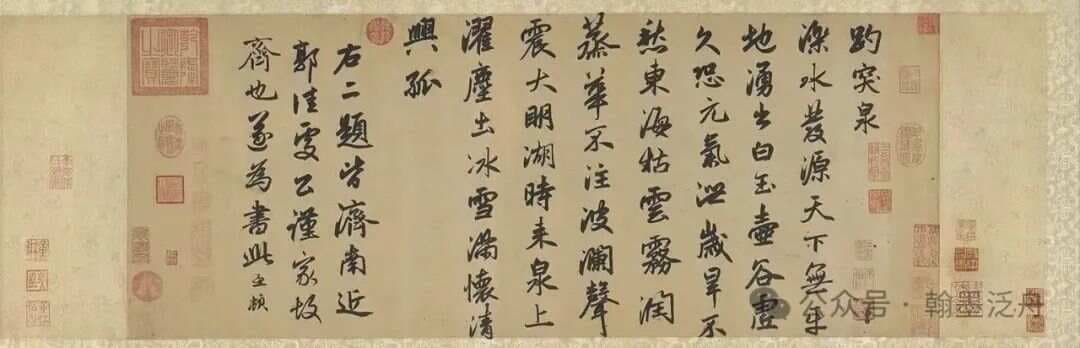 趵突泉
濼水發源天下無平
地湧出白玉壺谷虛
久恐元氣泄歲旱不
愁東海枯雲霧潤
蒸華不注波瀾聲
震大明湖時来泉上
濯塵土冰雪滿懷清
興孤
右二題皆濟南近
郭佳處公謹家故
齊也遂為書此孟頫
公众号 · 翰墨泛舟